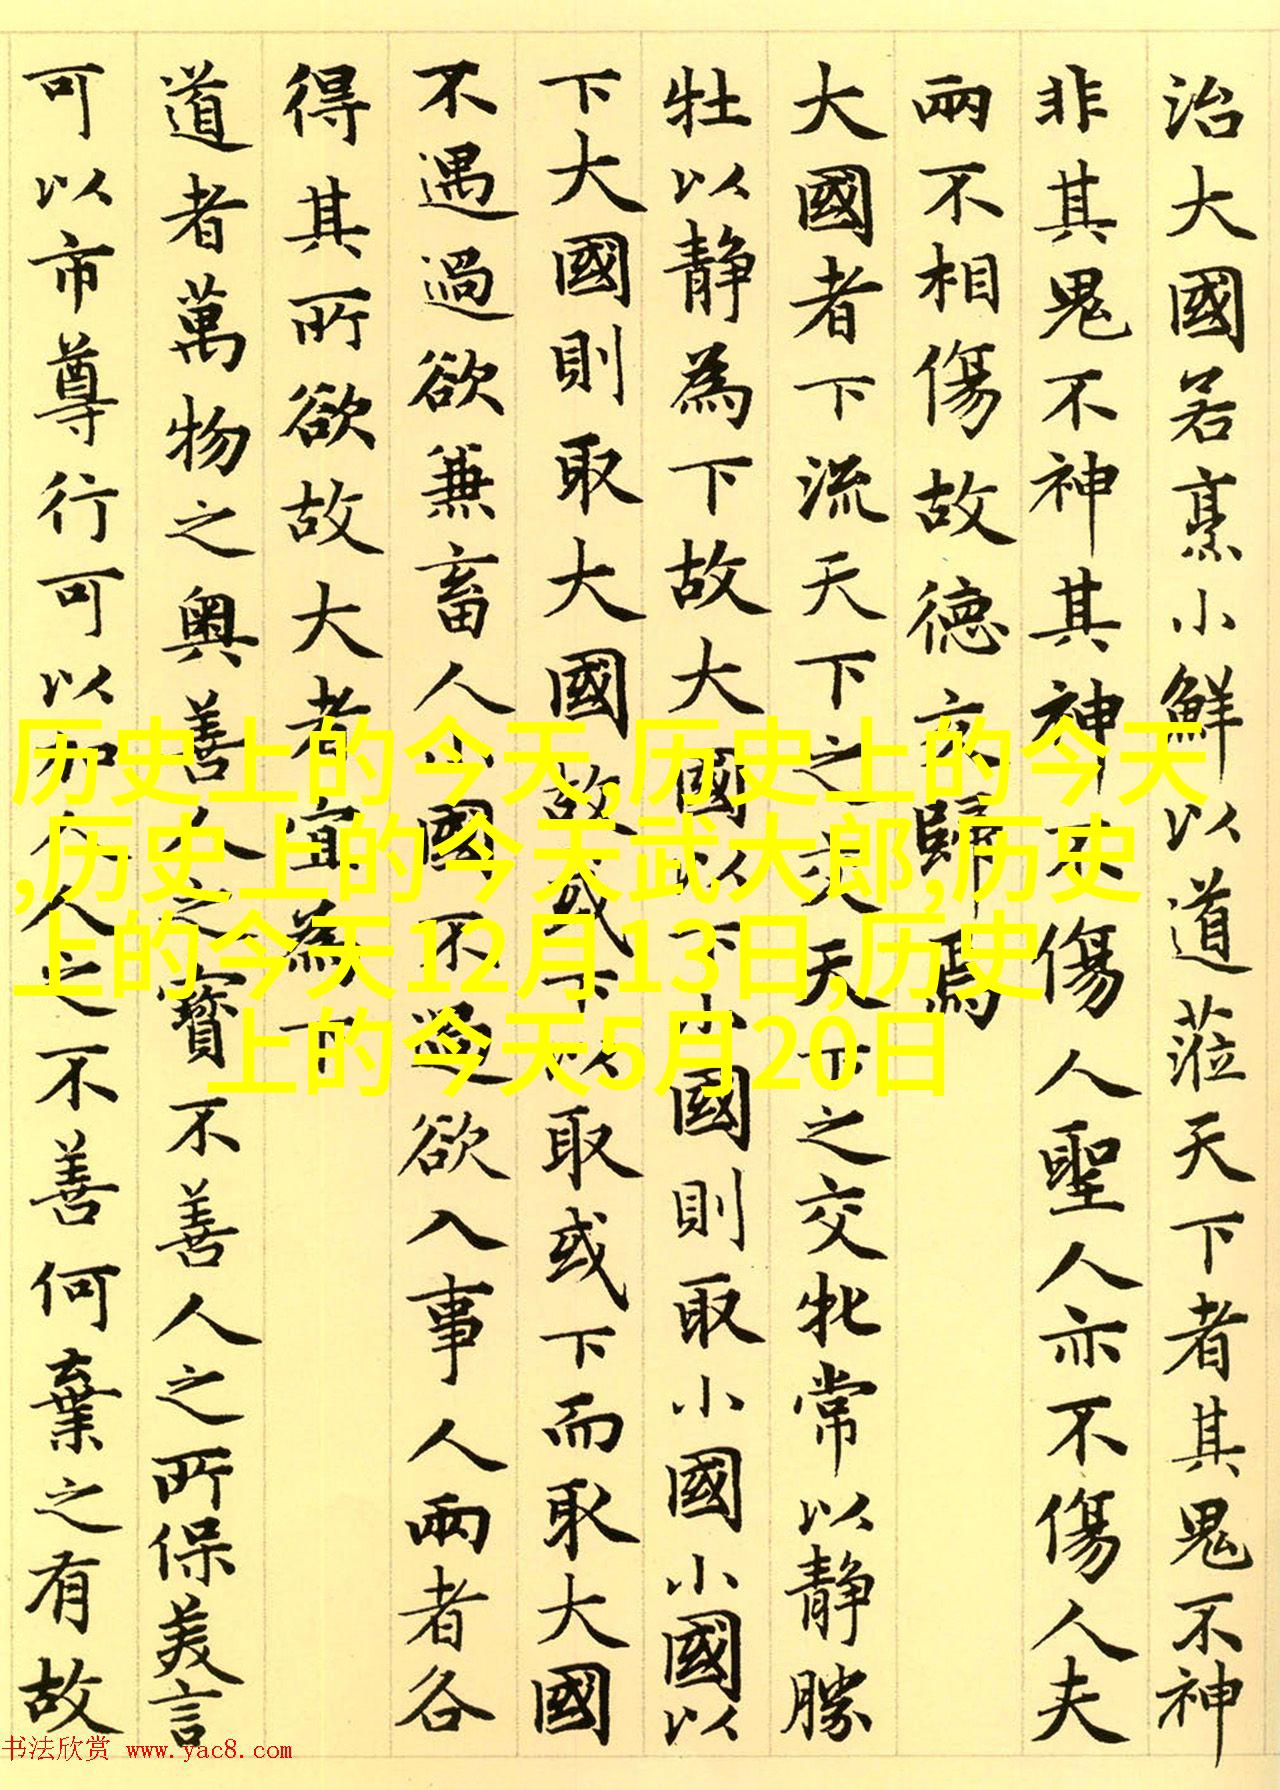 治大國若烹小鮮以道蒞天下者其鬼不神
非其鬼不神其神不傷人聖人亦不傷人夫
兩不相傷故德交歸焉
大國者下流天下之交天下之交牝常以静勝
牡以静為下故大國以下小國則取小國小國以
下大國則取大國故或下以取或下而取大國
不遇過欲兼畜人小國不過欲入事人兩者各
得其所欲故大者宜為下
道者萬物之奥善人之寶不善人之所保美言
可以市尊行可以加人人之不善何棄之有故
历史上的今天,历史上的今天
,历史上的今天武大郎,历史
上的今天12月13日,历史
上的今天5月20日
书法欣赏 www.yac8.com